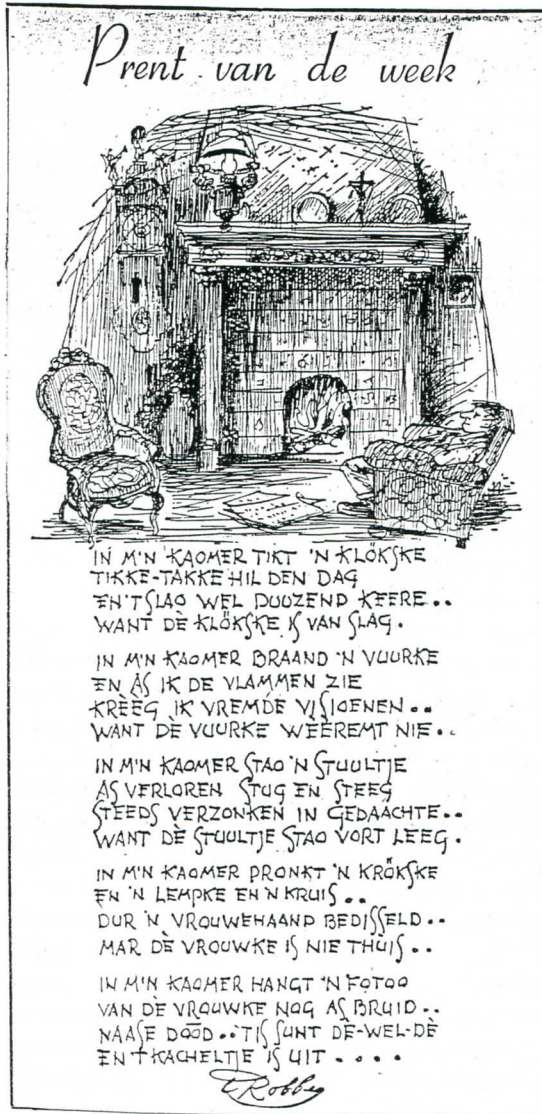 Prent van de week
IN M'N KAOMER TIKT 'N KLÖKSKE
TIKKE-TAKKE HIL DEN DAG
EN 'T SLAO WEL DUUZEND KEERE..
WANT DÈ KLÖKSKE IS VAN SLAG.
IN M'N KAOMER BRAAND 'N VUURKE
EN ÀS IK DE VLAMMEN ZIE
KRÈÈG IK VREMDE VISIOENEN..
WANT DÈ VUURKE WÈÈREMT NIE..
IN M'N KAOMER STAO 'N STUULTJE
AS VERLOREN STUG EN STEEG
STEEDS VERZONKEN IN GEDAACHTE..
WANT DÈ STUULTJE STAO VORT LEEG.
IN M'N KAOMER PRONKT 'N KRÖKSKE
EN 'N LEMPKE EN 'N KRUIS..
DUR 'N VROUWEHAAND BEDISSELD..
MAR DÈ VROUWKE IS NIE THUIS..
IN M'N KAOMER HANGT 'N FOTOO
VAN DÈ VROUWKE NOG AS BRUID..
NAASE DOOD..'T IS SUNT DÈ-WEL-DÈ
EN 't KACHELTJE IS UIT....